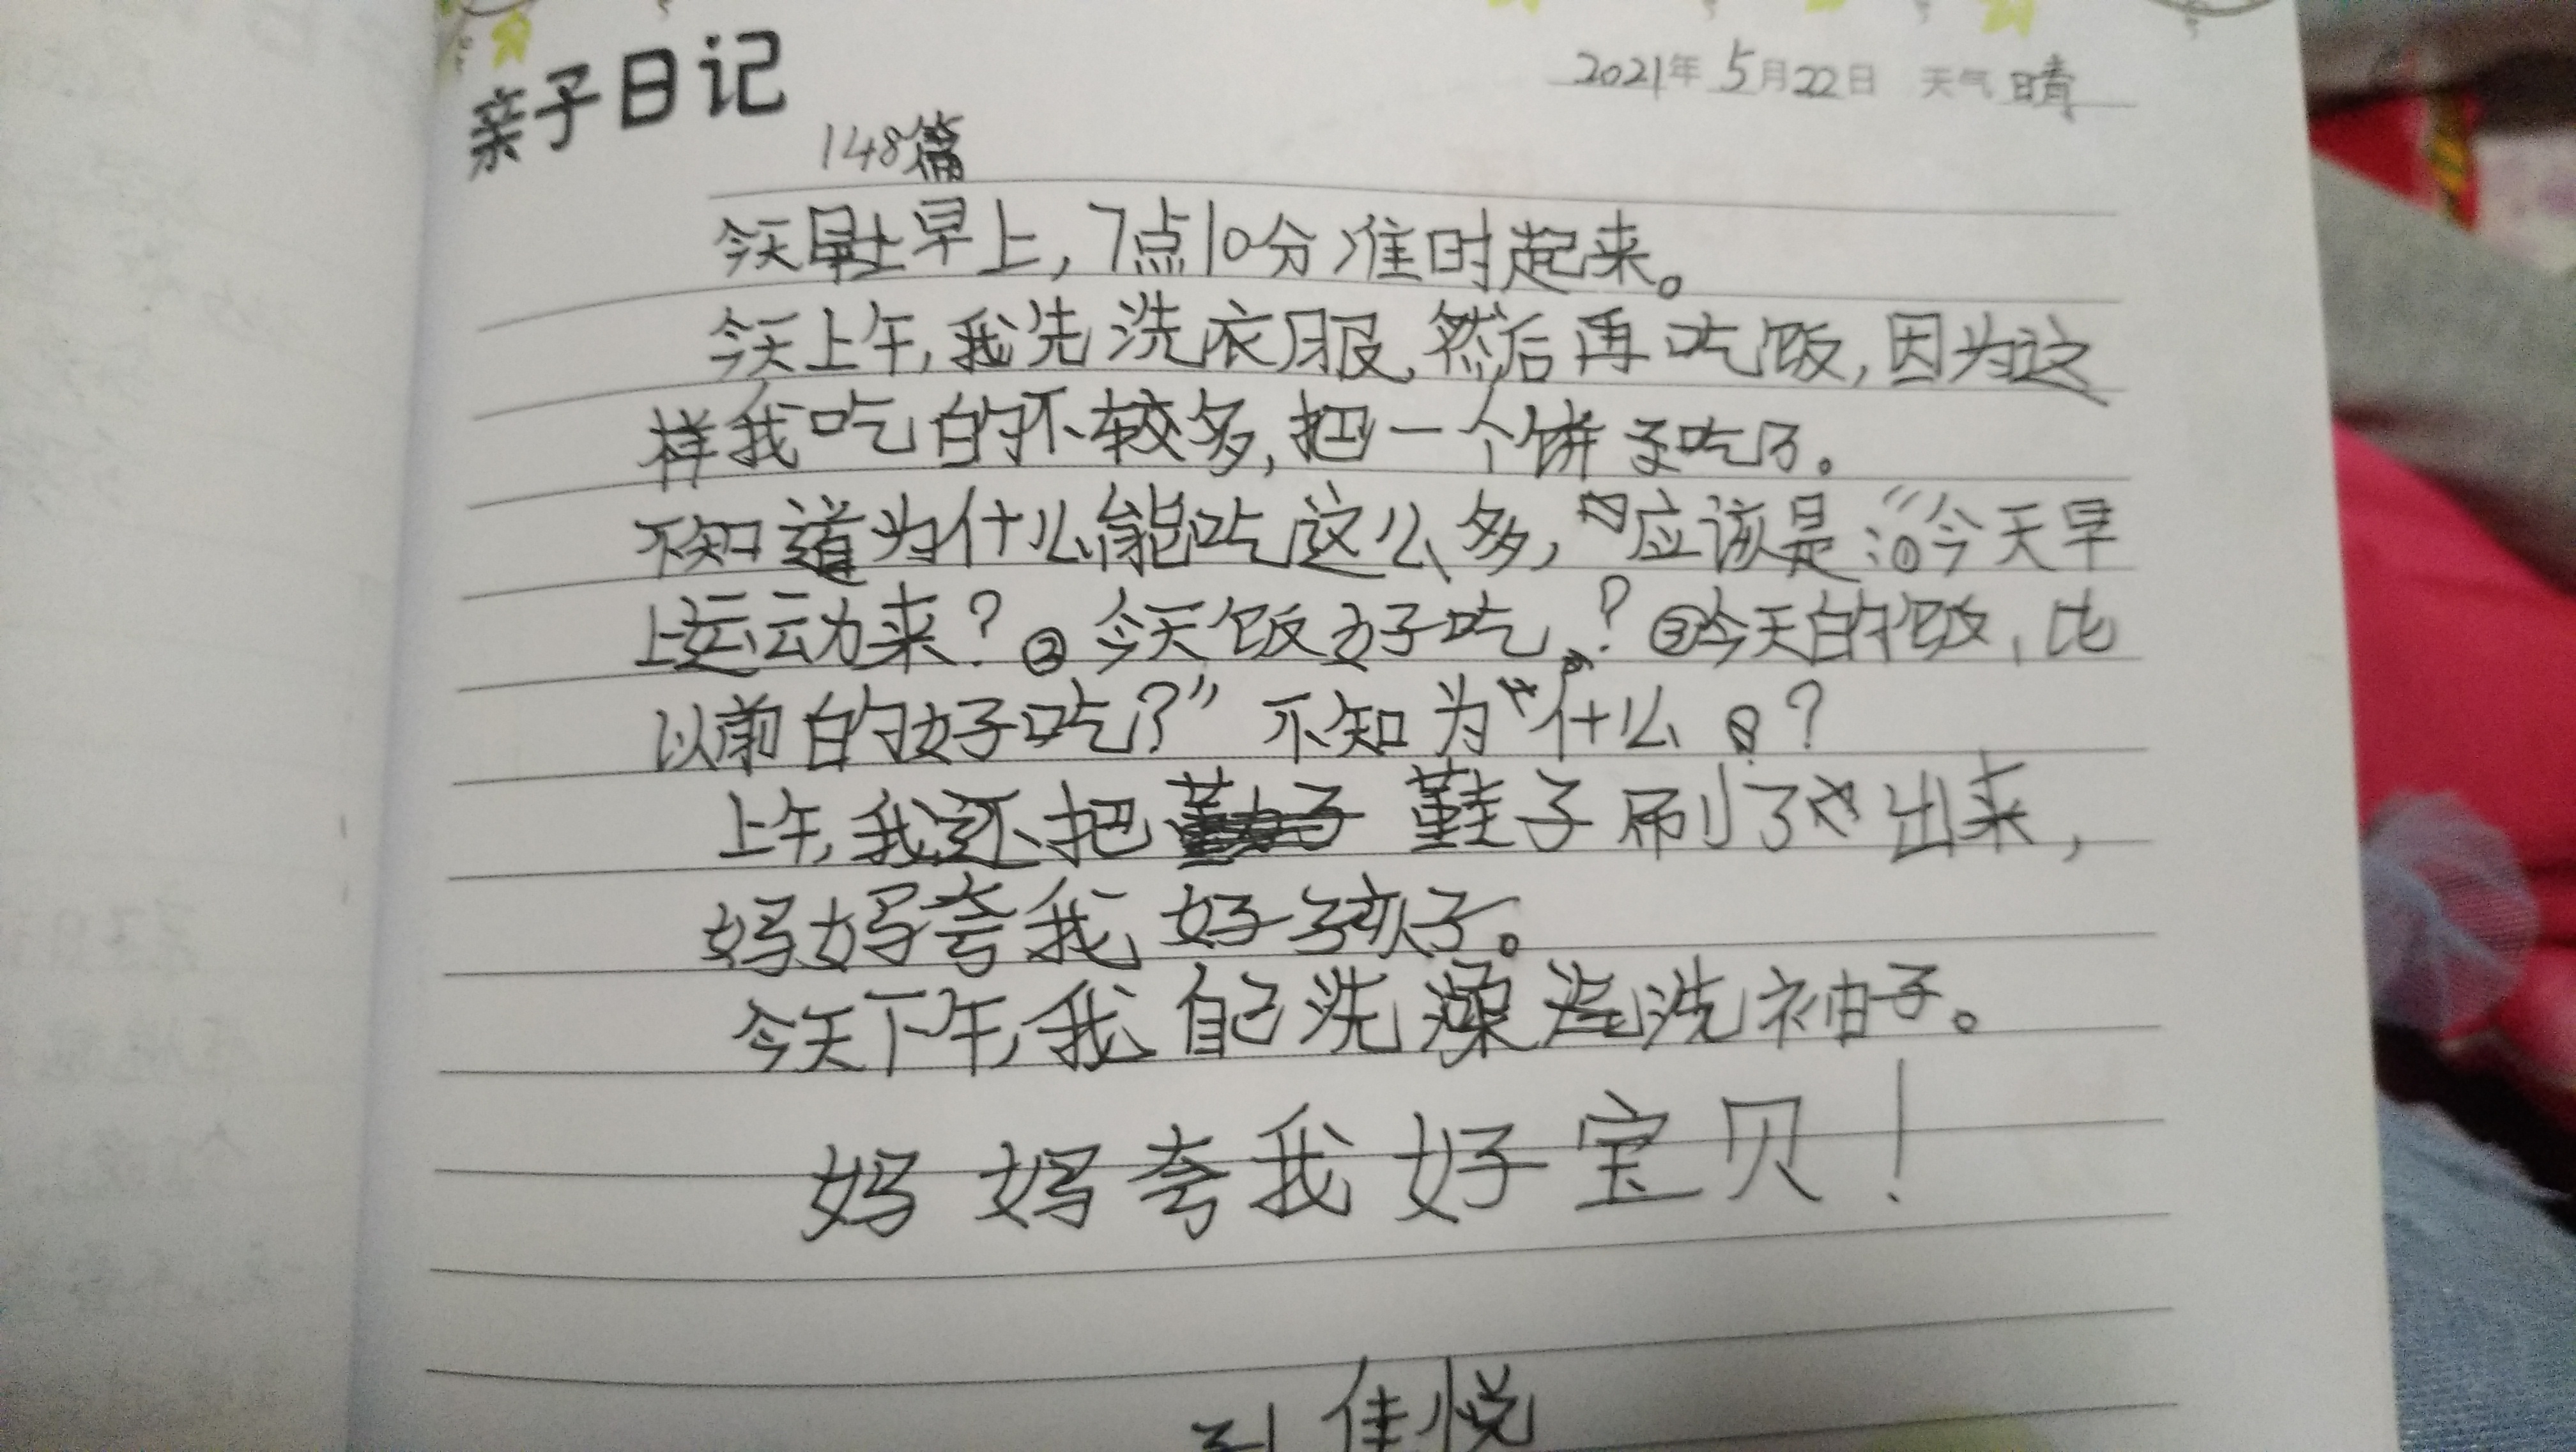 亲子日记
2021年5月22日 天气 晴
148篇
今天早上,7点10分准时起来。
今天上午,我先洗衣服,然后再吃饭,因为这
样我吃的不较多,把一个饼子吃了。
不知道为什么能吃这么多,应该是:“①今天早
上运动来?②今天饭好吃?③今天的饭,比
以前的好吃?”不知为什么?
上午,我还把鞋子刷了出来,
妈妈夸我好孩子。
今天下午,我自己洗澡洗袖子。
妈妈夸我好宝贝!
佳悦